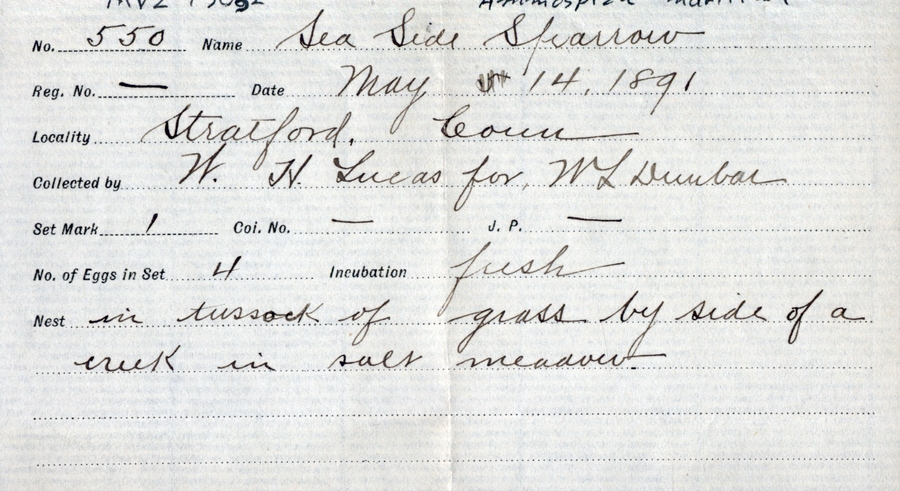 MVZ
No. 550 Name Sea Side Sparrow
Reg. No. — Date May 14, 1891
Locality Stratford, Conn
Collected by W. H. Lucas for, W L Dunbar
Set Mark 1 Coi. No. — J. P. —
No. of Eggs in Set 4 Incubation fresh
Nest in tussock of grass by side of a
creek in salt meadow.